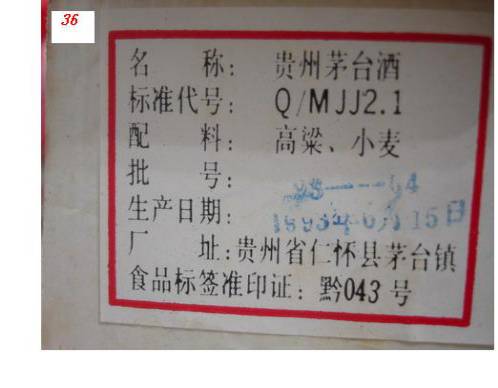 36
名 称: 贵州茅台酒
标准代号: Q/MJJ2.1
配 料: 高粱、小麦
批 号: 93---54
生产日期: 1993年6月15日
厂 址: 贵州省仁怀县茅台镇
食品标签准印证: 黔043号